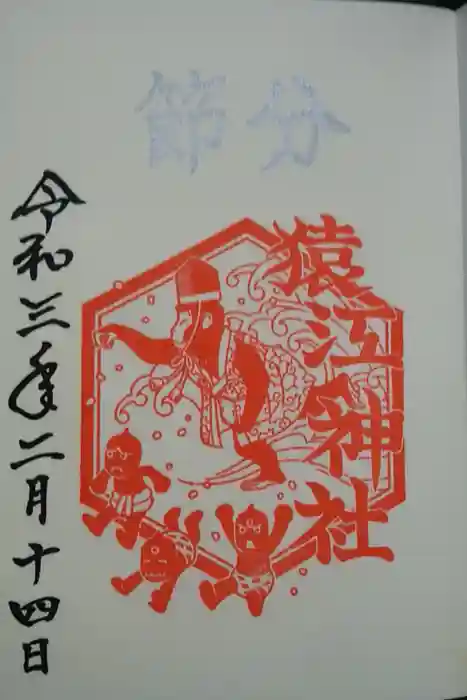 節分
猿江神社
令和三年二月十四日